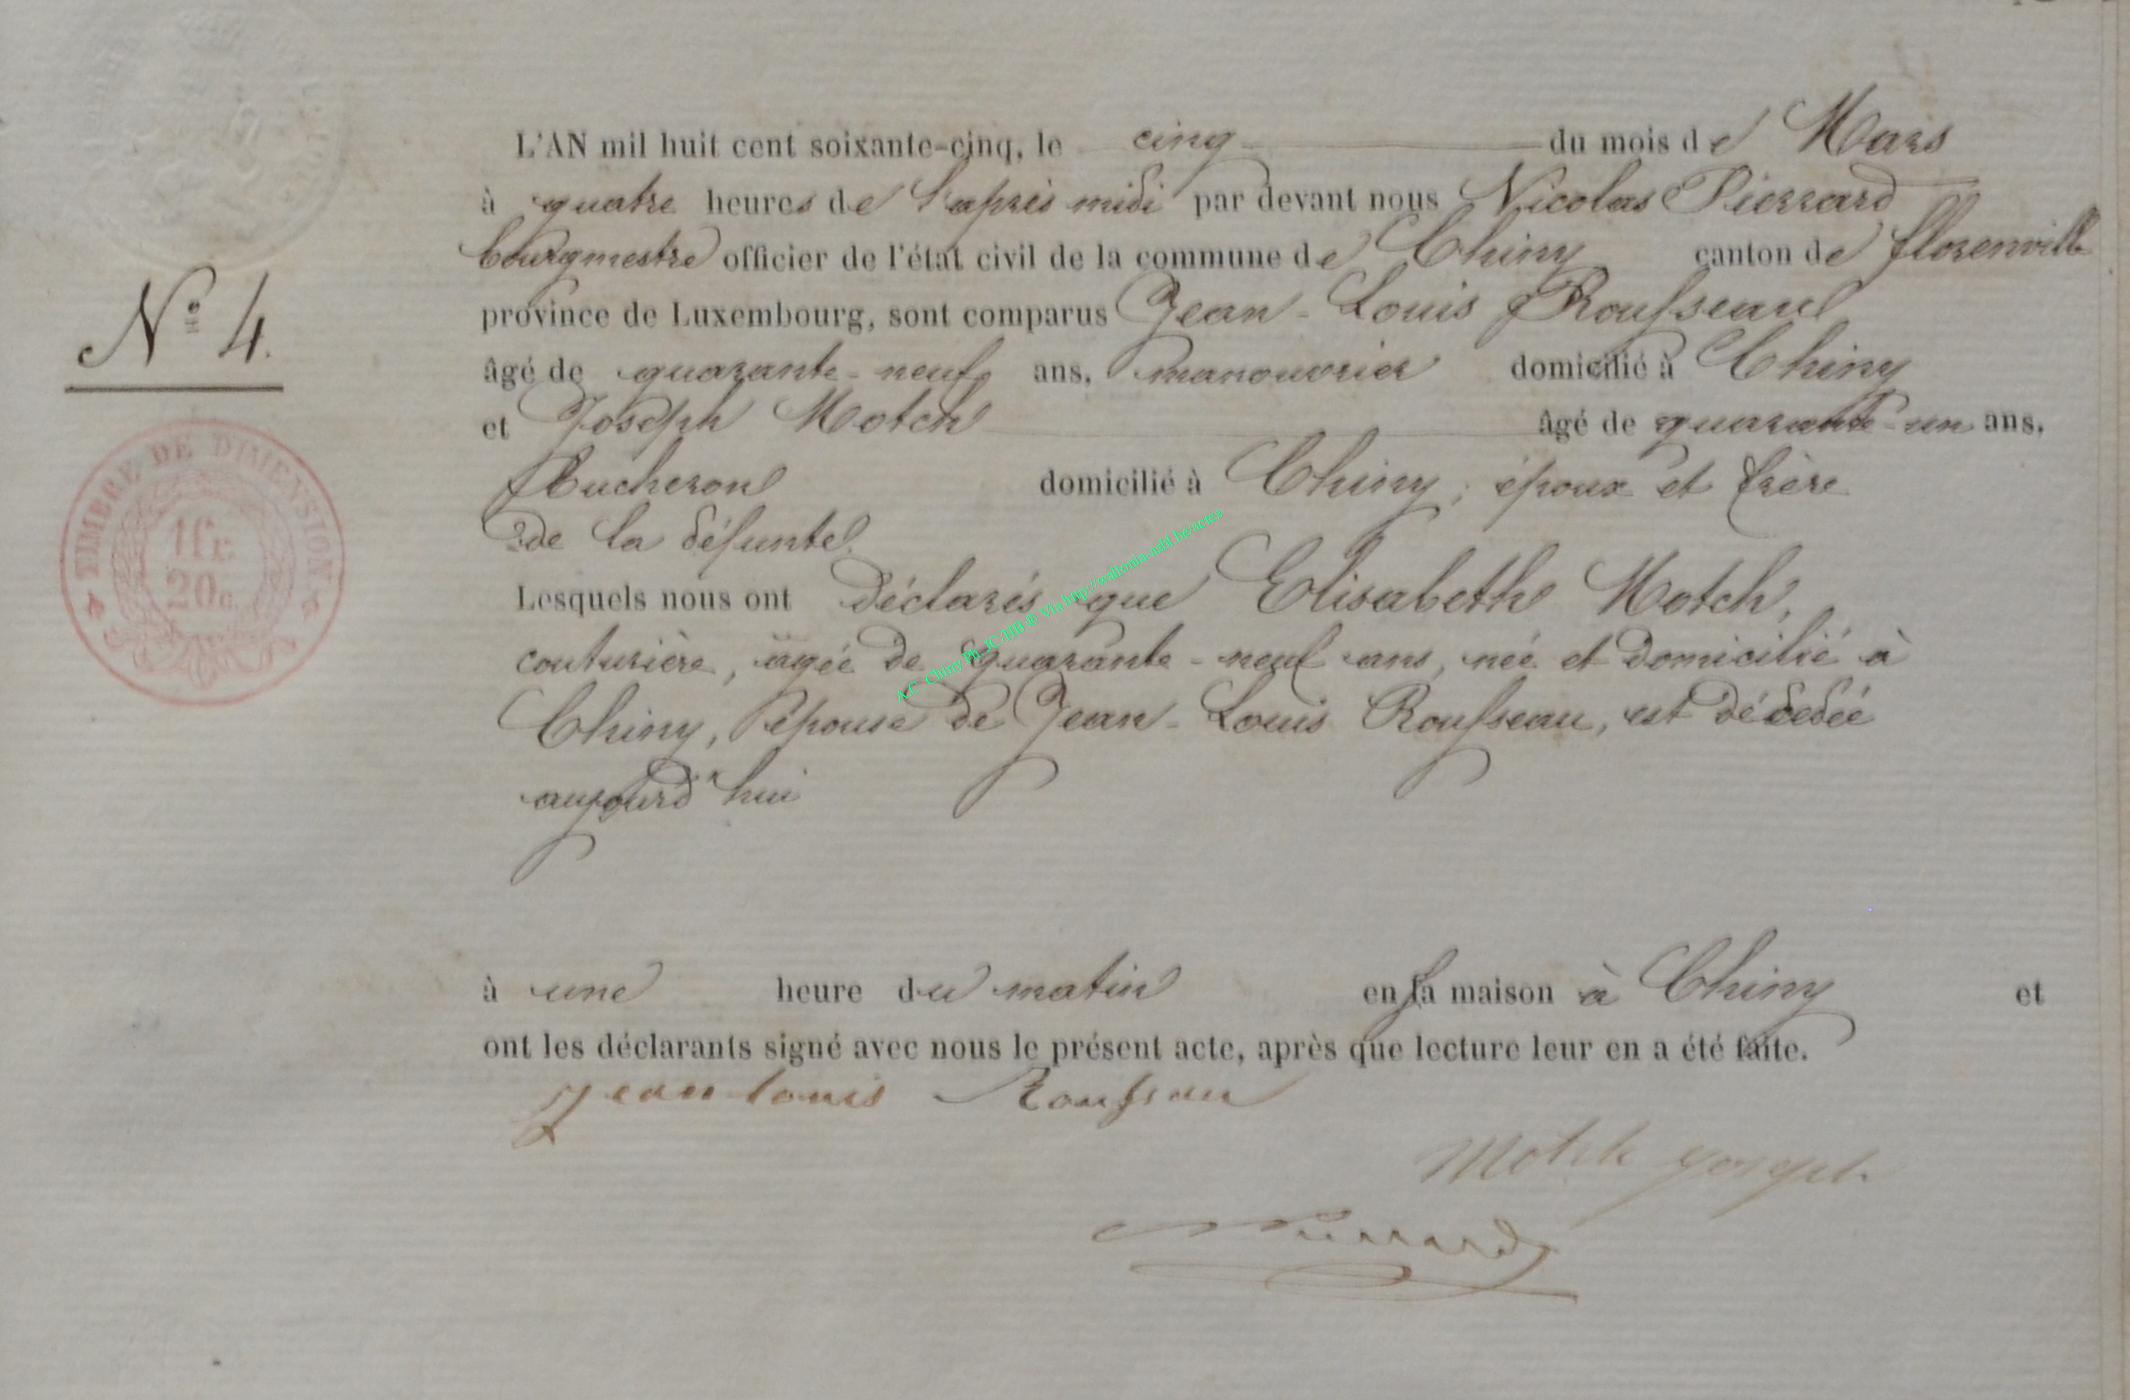 L'AN mil huit cent soixante-cinq, le cinq du mois de Mars
à quatre heures de l'après midi par devant nous Nicolas Pierrard
bourgmestre officier de l'état civil de la commune de Chiny canton de florenville
N° 4.
province de Luxembourg, sont comparus Jean-Louis Rousseau
âgé de quarante-neuf ans, manouvrier domicilié à Chiny
et Joseph Motch âgé de quarante-un ans,
Bucheron domicilié à Chiny; époux et frère
de la défunte.
TIMBRE DE DIMENSION
1fr.
20c.
Lesquels nous ont déclarés que Elisabeth Motch,
couturière, agée de quarante-neuf ans, née et domicilié à
Chiny, épouse de Jean-Louis Rousseau, est décedée
aujourd'hui
A.C. Chiny Ph. JC HB ® Via http://wallonia-asbl.be/actes
à une heure du matin en sa maison à Chiny et
ont les déclarants signé avec nous le présent acte, après que lecture leur en a été faite.
Jean louis Rousseau
Motch Joseph
NPierrard